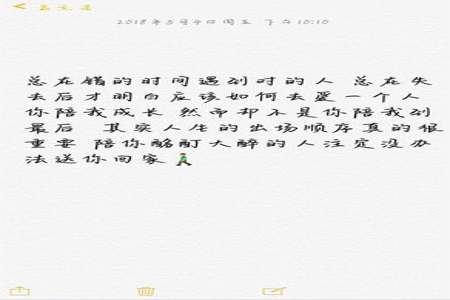 2018年5月4日周五 下午10:10
总在错的时间遇到对的人 总在失
去后才明白应该如何去爱一个人
你陪我成长 然而却不是你陪我到
最后 其实人生的出场顺序真的很
重要 陪你酩酊大醉的人注定没办
法送你回家